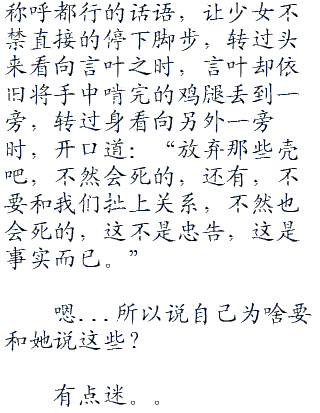 称呼都行的话语，让少女不
禁直接的停下脚步，转过头
来看向言叶之时，言叶却依
旧将手中啃完的鸡腿丢到一
旁，转过身看向另外一旁
时，开口道：“放弃那些壳
吧，不然会死的，还有，不
要和我们扯上关系，不然也
会死的，这不是忠告，这是
事实而已。”
嗯...所以说自己为啥要
和她说这些？
有点迷。。